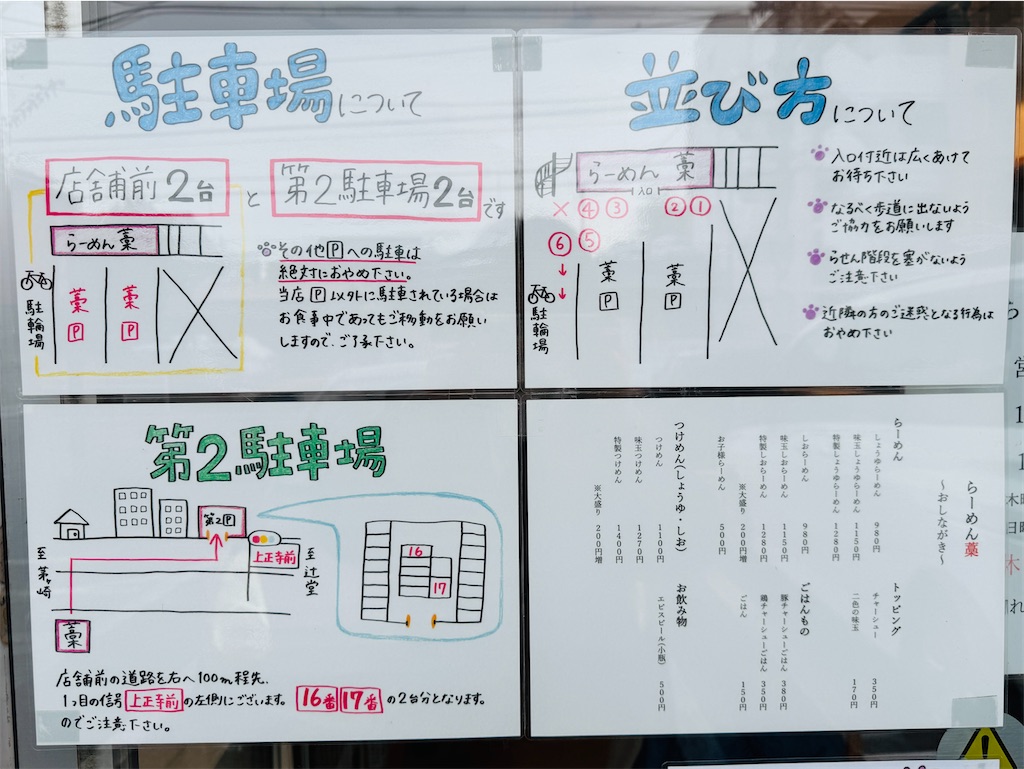 駐車場について
店舗前2台
と
第2駐車場2台
です
らーめん 藁
藁
P
藁
P
駐輪場
その他Pへの駐車は
絶対におやめ下さい。
当店P以外に駐車されている場合は
お食事中であってもご移動をお願い
しますので、ご了承下さい。
並び方について
らーめん 藁
入口
×
④
③
②
①
⑥
⑤
藁
P
藁
P
駐輪場
入口付近は広くあけて
お待ち下さい
なるべく歩道に出ないよう
ご協力をお願いします
らせん階段を塞がないよう
ご注意下さい
近隣の方のご迷惑となる行為は
おやめ下さい
第2駐車場
第2P
上正寺前
至茅ヶ崎
至辻堂
藁
16
17
店舗前の道路を右へ100m程先、
1つ目の信号上正寺前の左側にございます。16番17番の2台分となります。
のでご注意下さい。
らーめん藁
～おしながき～
らーめん
しょうゆらーめん 980円
味玉しょうゆらーめん 1150円
特製しょうゆらーめん 1280円
しおらーめん 980円
味玉しおらーめん 1150円
特製しおらーめん 1280円
※大盛り 200円増
お子様らーめん 500円
つけめん(しょうゆ・しお)
つけめん 1100円
味玉つけめん 1270円
特製つけめん 1400円
※大盛り 200円増
トッピング
チャーシュー 350円
二色の味玉 170円
ごはんもの
豚チャーシューごはん 380円
鶏チャーシューごはん 350円
ごはん 150円
お飲み物
エビスビール(小瓶) 500円
営
木